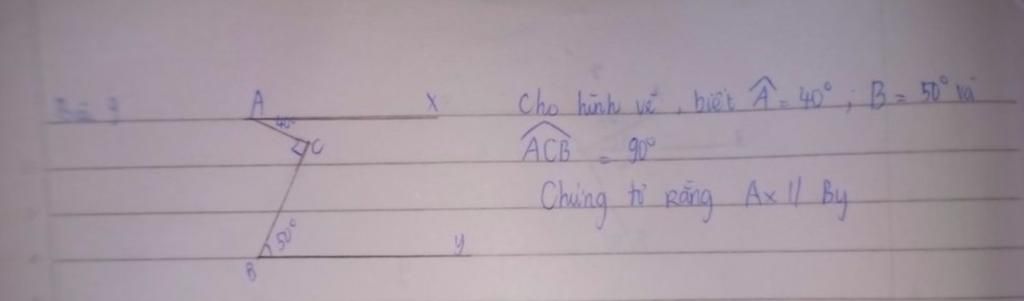 A x
40°
C
50°
B y
Cho hình vẽ, biết Â = 40° ; B = 50° và
ACB = 90°
Chứng tỏ Rằng Ax // By